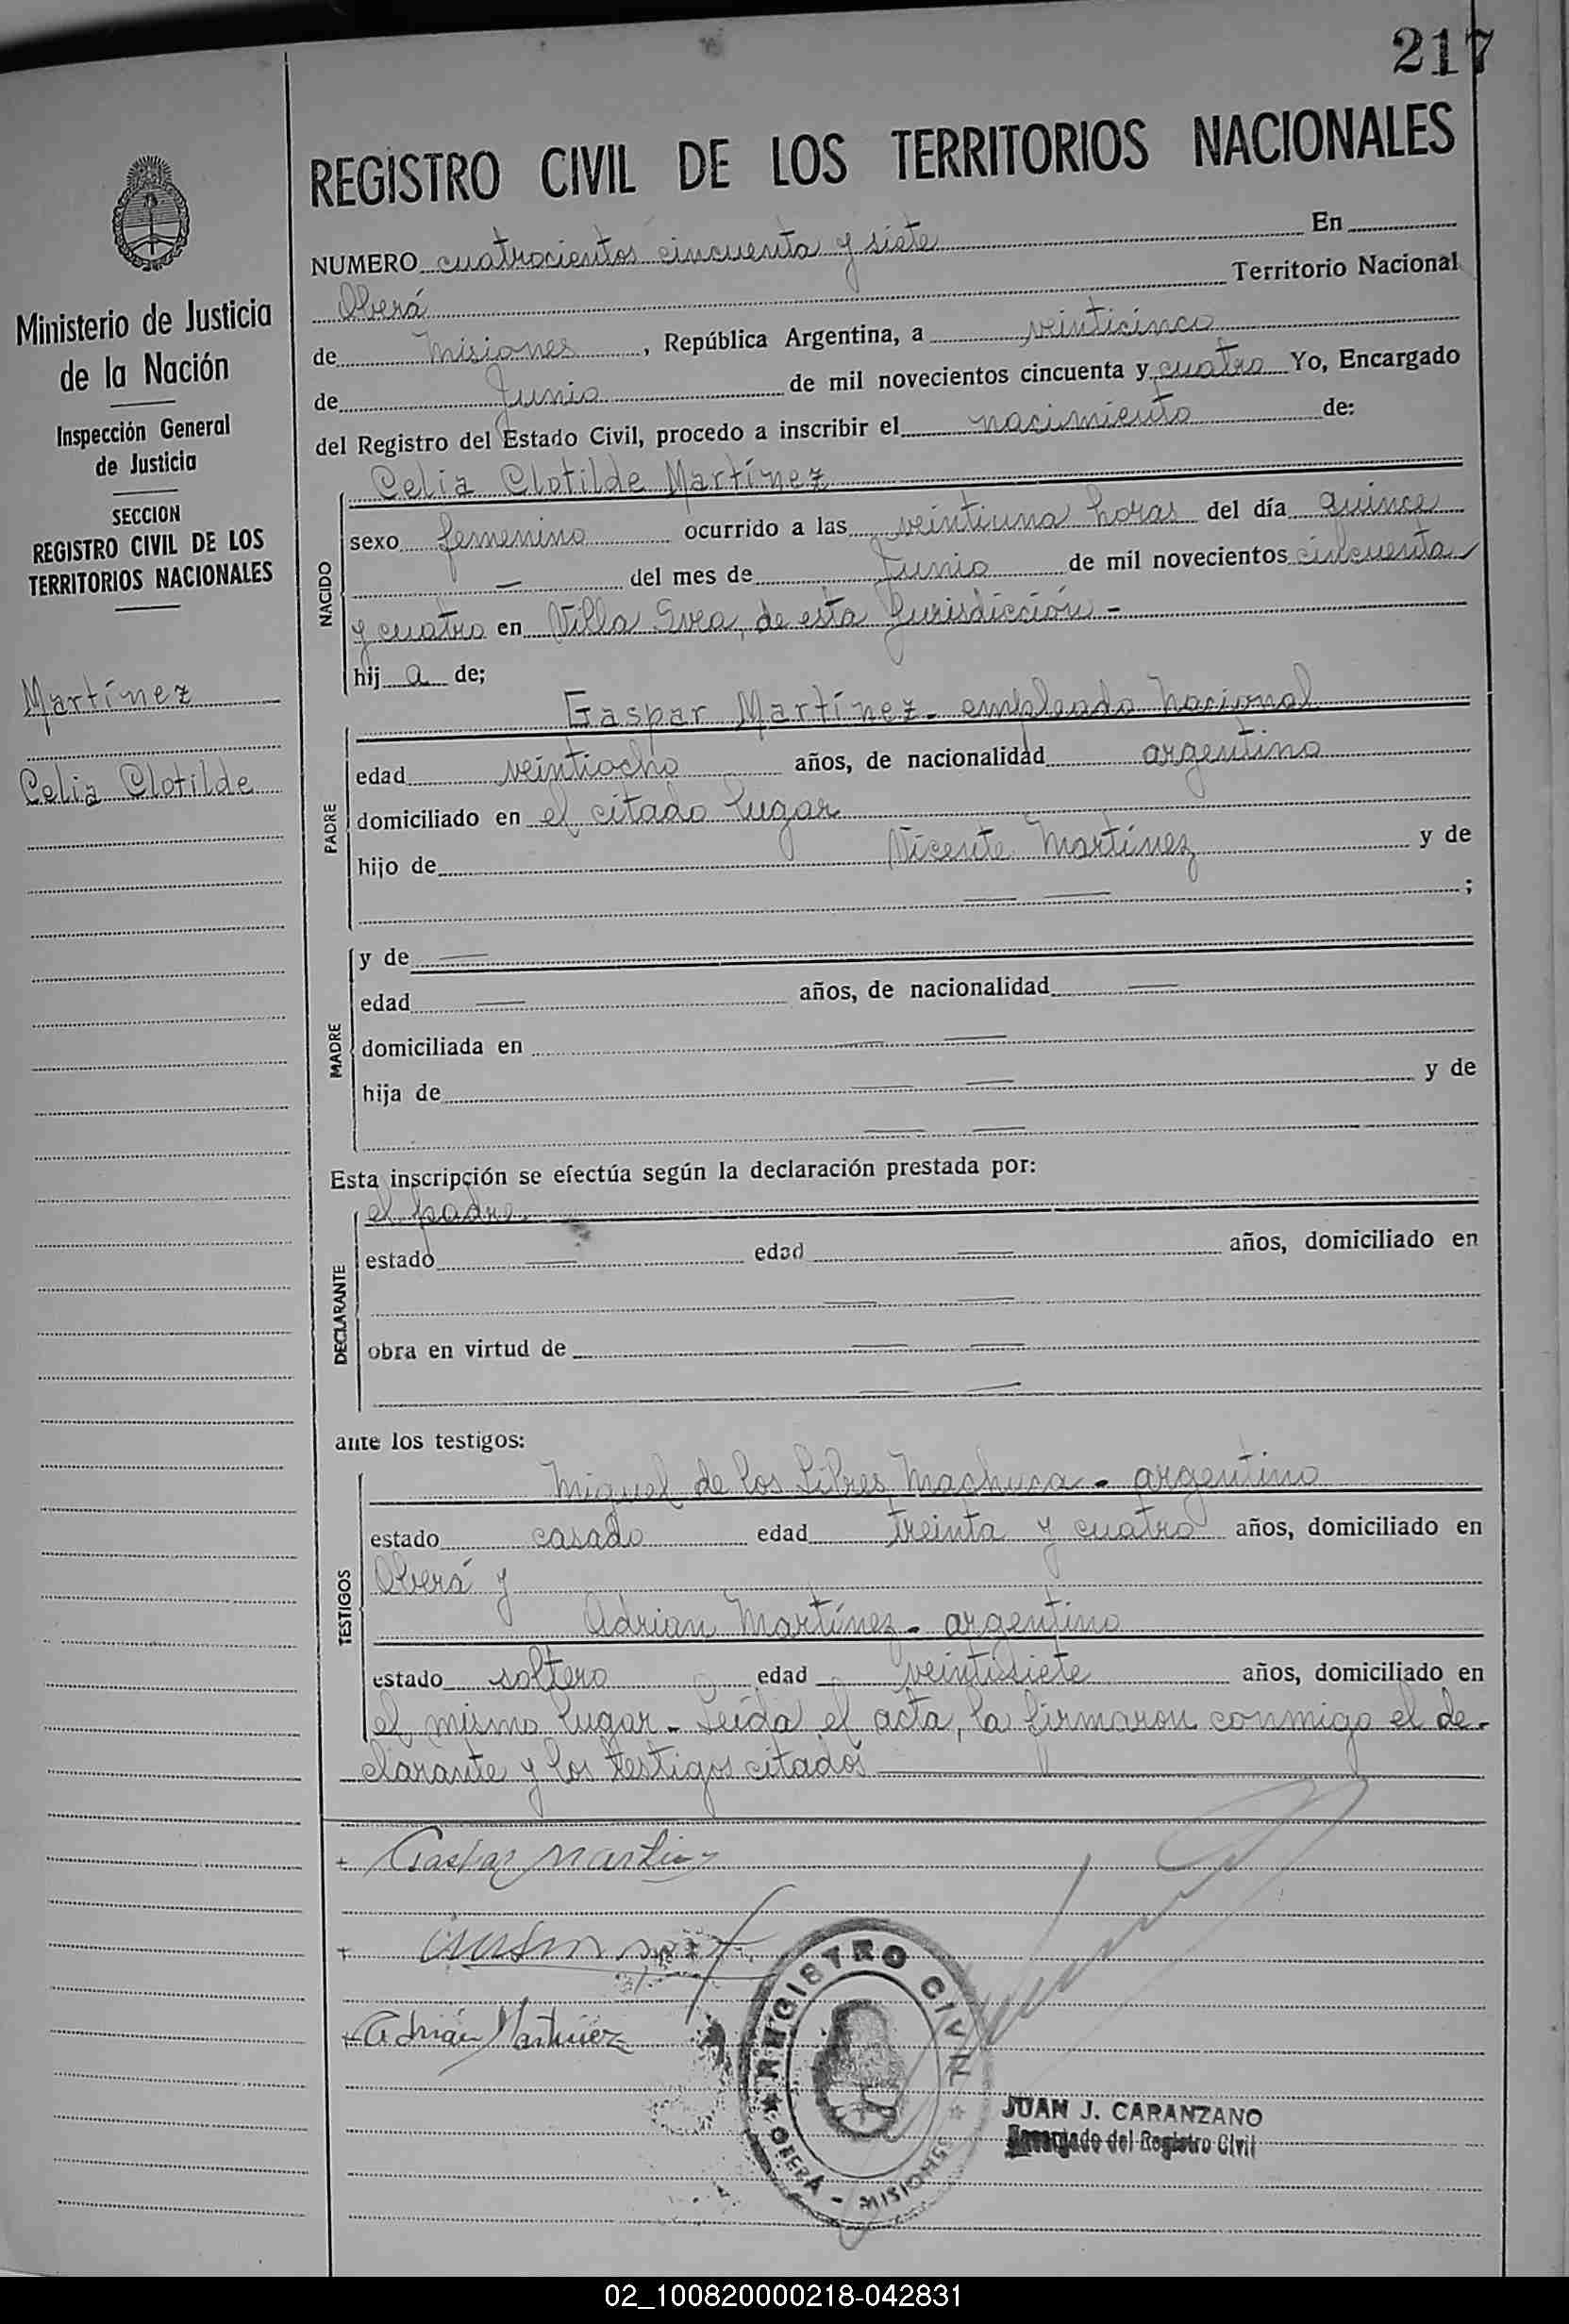 217
REGISTRO CIVIL DE LOS TERRITORIOS NACIONALES
Ministerio de Justicia
de la Nación
Inspección General
de Justicia
SECCION
REGISTRO CIVIL DE LOS
TERRITORIOS NACIONALES
Martínez
Celia Clotilde
NUMERO cuatrocientos cincuenta y siete En
Oberá Territorio Nacional
de Misiones, República Argentina, a veinticinco
de Junio de mil novecientos cincuenta y cuatro Yo, Encargado
del Registro del Estado Civil, procedo a inscribir el nacimiento de:
NACIDO
Celia Clotilde Martínez
sexo femenino ocurrido a las veintiuna horas del día quince
— del mes de Junio de mil novecientos cincuenta
y cuatro en Villa Svea, de esta Jurisdicción -
hij a de;
PADRE
Gaspar Martínez - empleado nacional
edad veintiocho años, de nacionalidad argentino
domiciliado en el citado lugar
hijo de Vicente Martínez y de
— — ;
MADRE
y de —
edad — años, de nacionalidad —
domiciliada en — —
hija de — — y de
— —
Esta inscripción se efectúa según la declaración prestada por:
DECLARANTE
el padre
estado — edad — años, domiciliado en
— —
obra en virtud de — —
— —
ante los testigos:
TESTIGOS
Miguel de los Libres Machuca - argentino
estado casado edad treinta y cuatro años, domiciliado en
Oberá y
Adrian Martínez - argentino
estado soltero edad veintisiete años, domiciliado en
el mismo lugar - Leída el acta, la firmaron conmigo el de-
clarante y los testigos citados
+ Gaspar Martinez
+
+ Adrián Martinez
REGISTRO CIVIL
OBERÁ - MISIONES
JUAN J. CARANZANO
Encargado del Registro Civil
02_100820000218-042831